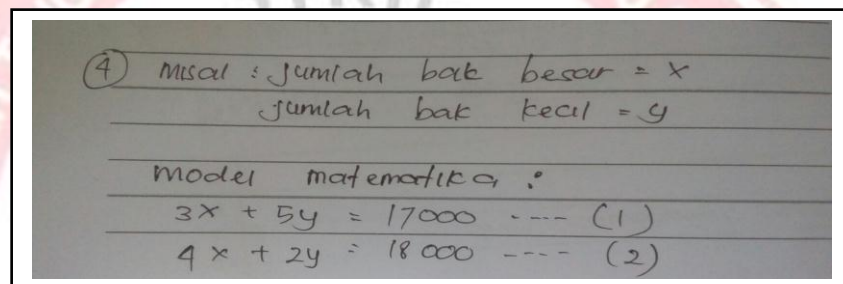 ④ misal : Jumlah bak besar = x
Jumlah bak kecil = y
model matematika :
3x + 5y = 17000 ---- (1)
4x + 2y = 18 000 ---- (2)